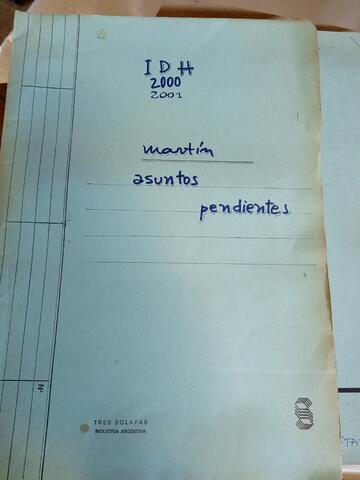 IDH
2000
2001
martín
asuntos
pendientes
Nº
TRES SOLAPAS
INDUSTRIA ARGENTINA